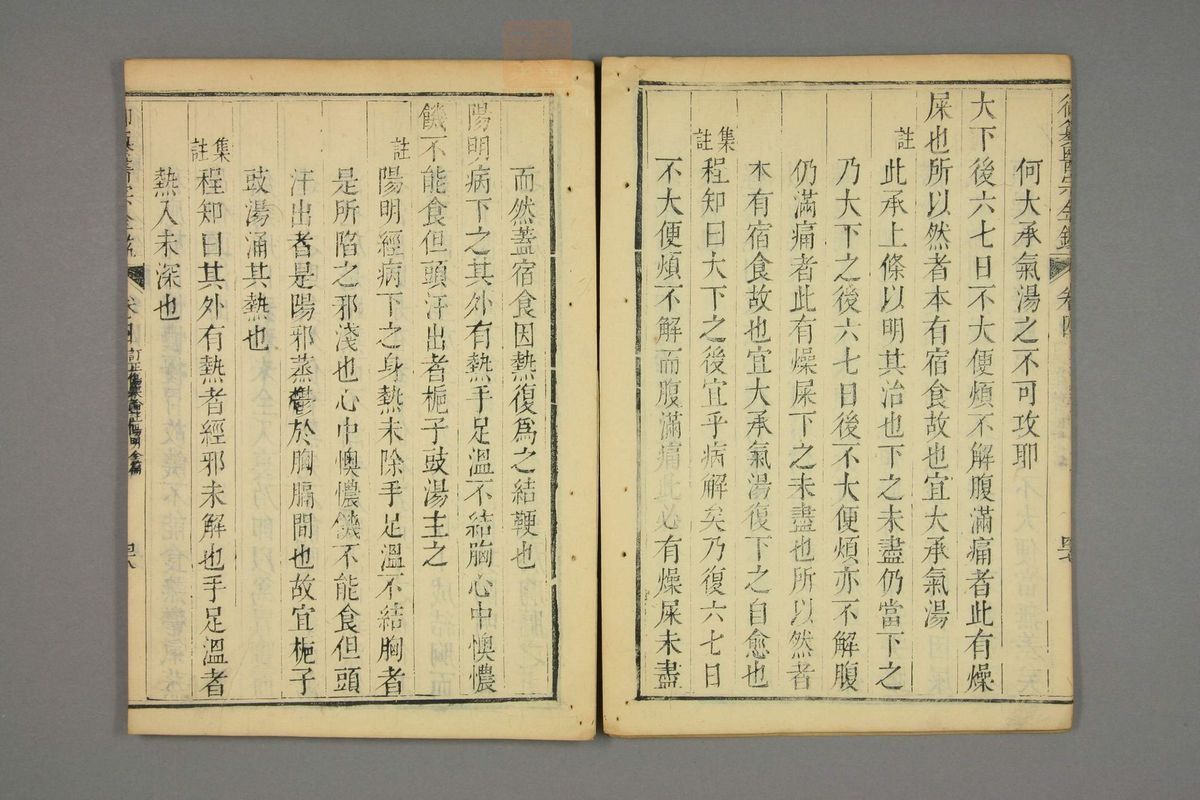 御纂醫宗金鑑 卷四
何大承氣湯之不可攻耶
大下後六七日不大便煩不解腹滿痛者此有燥
屎也所以然者本有宿食故也宜大承氣湯
註
此承上條以明其治也下之未盡仍當下之
乃大下之後六七日後不大便煩亦不解腹
仍滿痛者此有燥屎下之未盡也所以然者
本有宿食故也宜大承氣湯復下之自愈也
集註
程知曰大下之後宜乎病解矣乃復六七日
不大便煩不解而腹滿痛此必有燥屎未盡
而然蓋宿食因熱復爲之結鞕也
陽明病下之其外有熱手足溫不結胸心中懊憹
饑不能食但頭汗出者梔子豉湯主之
註
陽明經病下之身熱未除手足溫不結胸者
是所陷之邪淺也心中懊憹饑不能食但頭
汗出者是陽邪蒸鬱於胸膈間也故宜梔子
豉湯涌其熱也
集註
程知曰其外有熱者經邪未解也手足溫者
熱入未深也
卷四